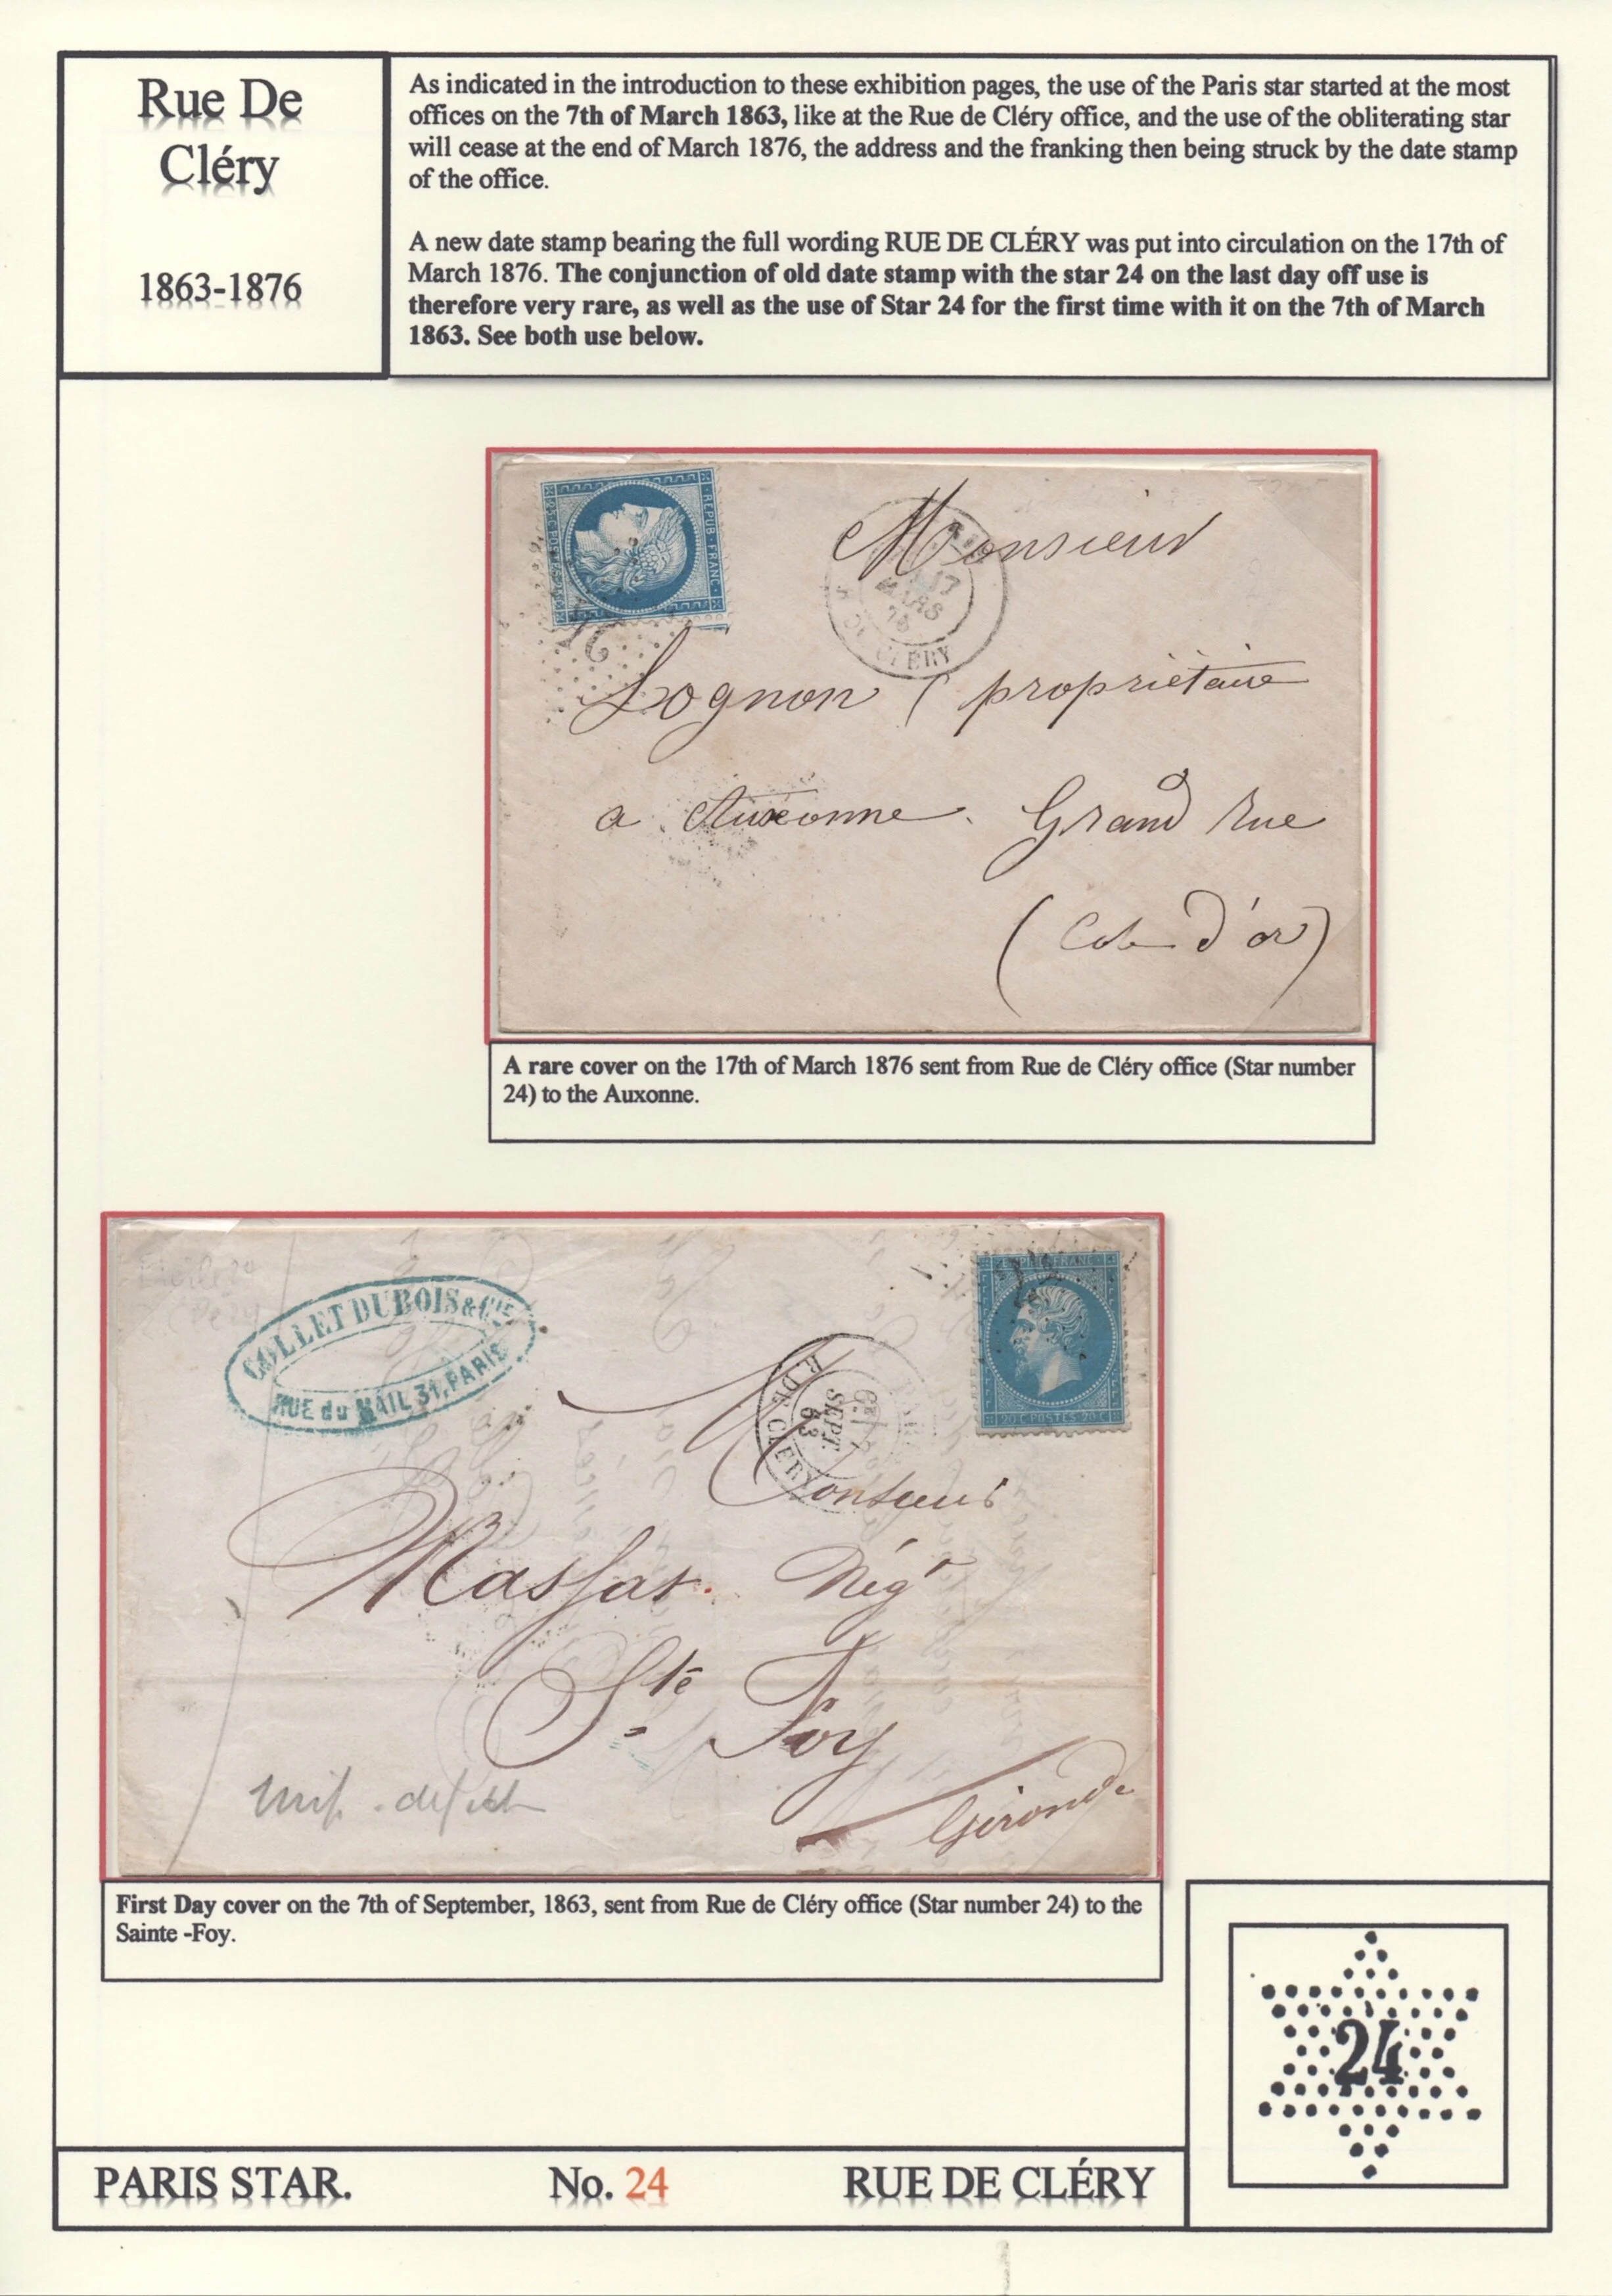 Rue De
Cléry
1863-1876
As indicated in the introduction to these exhibition pages, the use of the Paris star started at the most
offices on the 7th of March 1863, like at the Rue de Cléry office, and the use of the obliterating star
will cease at the end of March 1876, the address and the franking then being struck by the date stamp
of the office.
A new date stamp bearing the full wording RUE DE CLÉRY was put into circulation on the 17th of
March 1876. The conjunction of old date stamp with the star 24 on the last day off use is
therefore very rare, as well as the use of Star 24 for the first time with it on the 7th of March
1863. See both use below.
REPUB. FRANC.
24
17
MARS
CLÉRY
Monsieur
Lognon propriétaire
a Auxonne. Grand Rue
(Cote d'or)
A rare cover on the 17th of March 1876 sent from Rue de Cléry office (Star number
24) to the Auxonne.
COLLET DUBOIS & CIE
RUE du MAIL 31, PARIS
20 C. POSTES. 20 C.
R. DE CLERY
7
SEPT.
63
Monsieur
Massat Négt
Ste Foy
Gironde
First Day cover on the 7th of September, 1863, sent from Rue de Cléry office (Star number 24) to the
Sainte -Foy.
24
PARIS STAR. No. 24 RUE DE CLÉRY